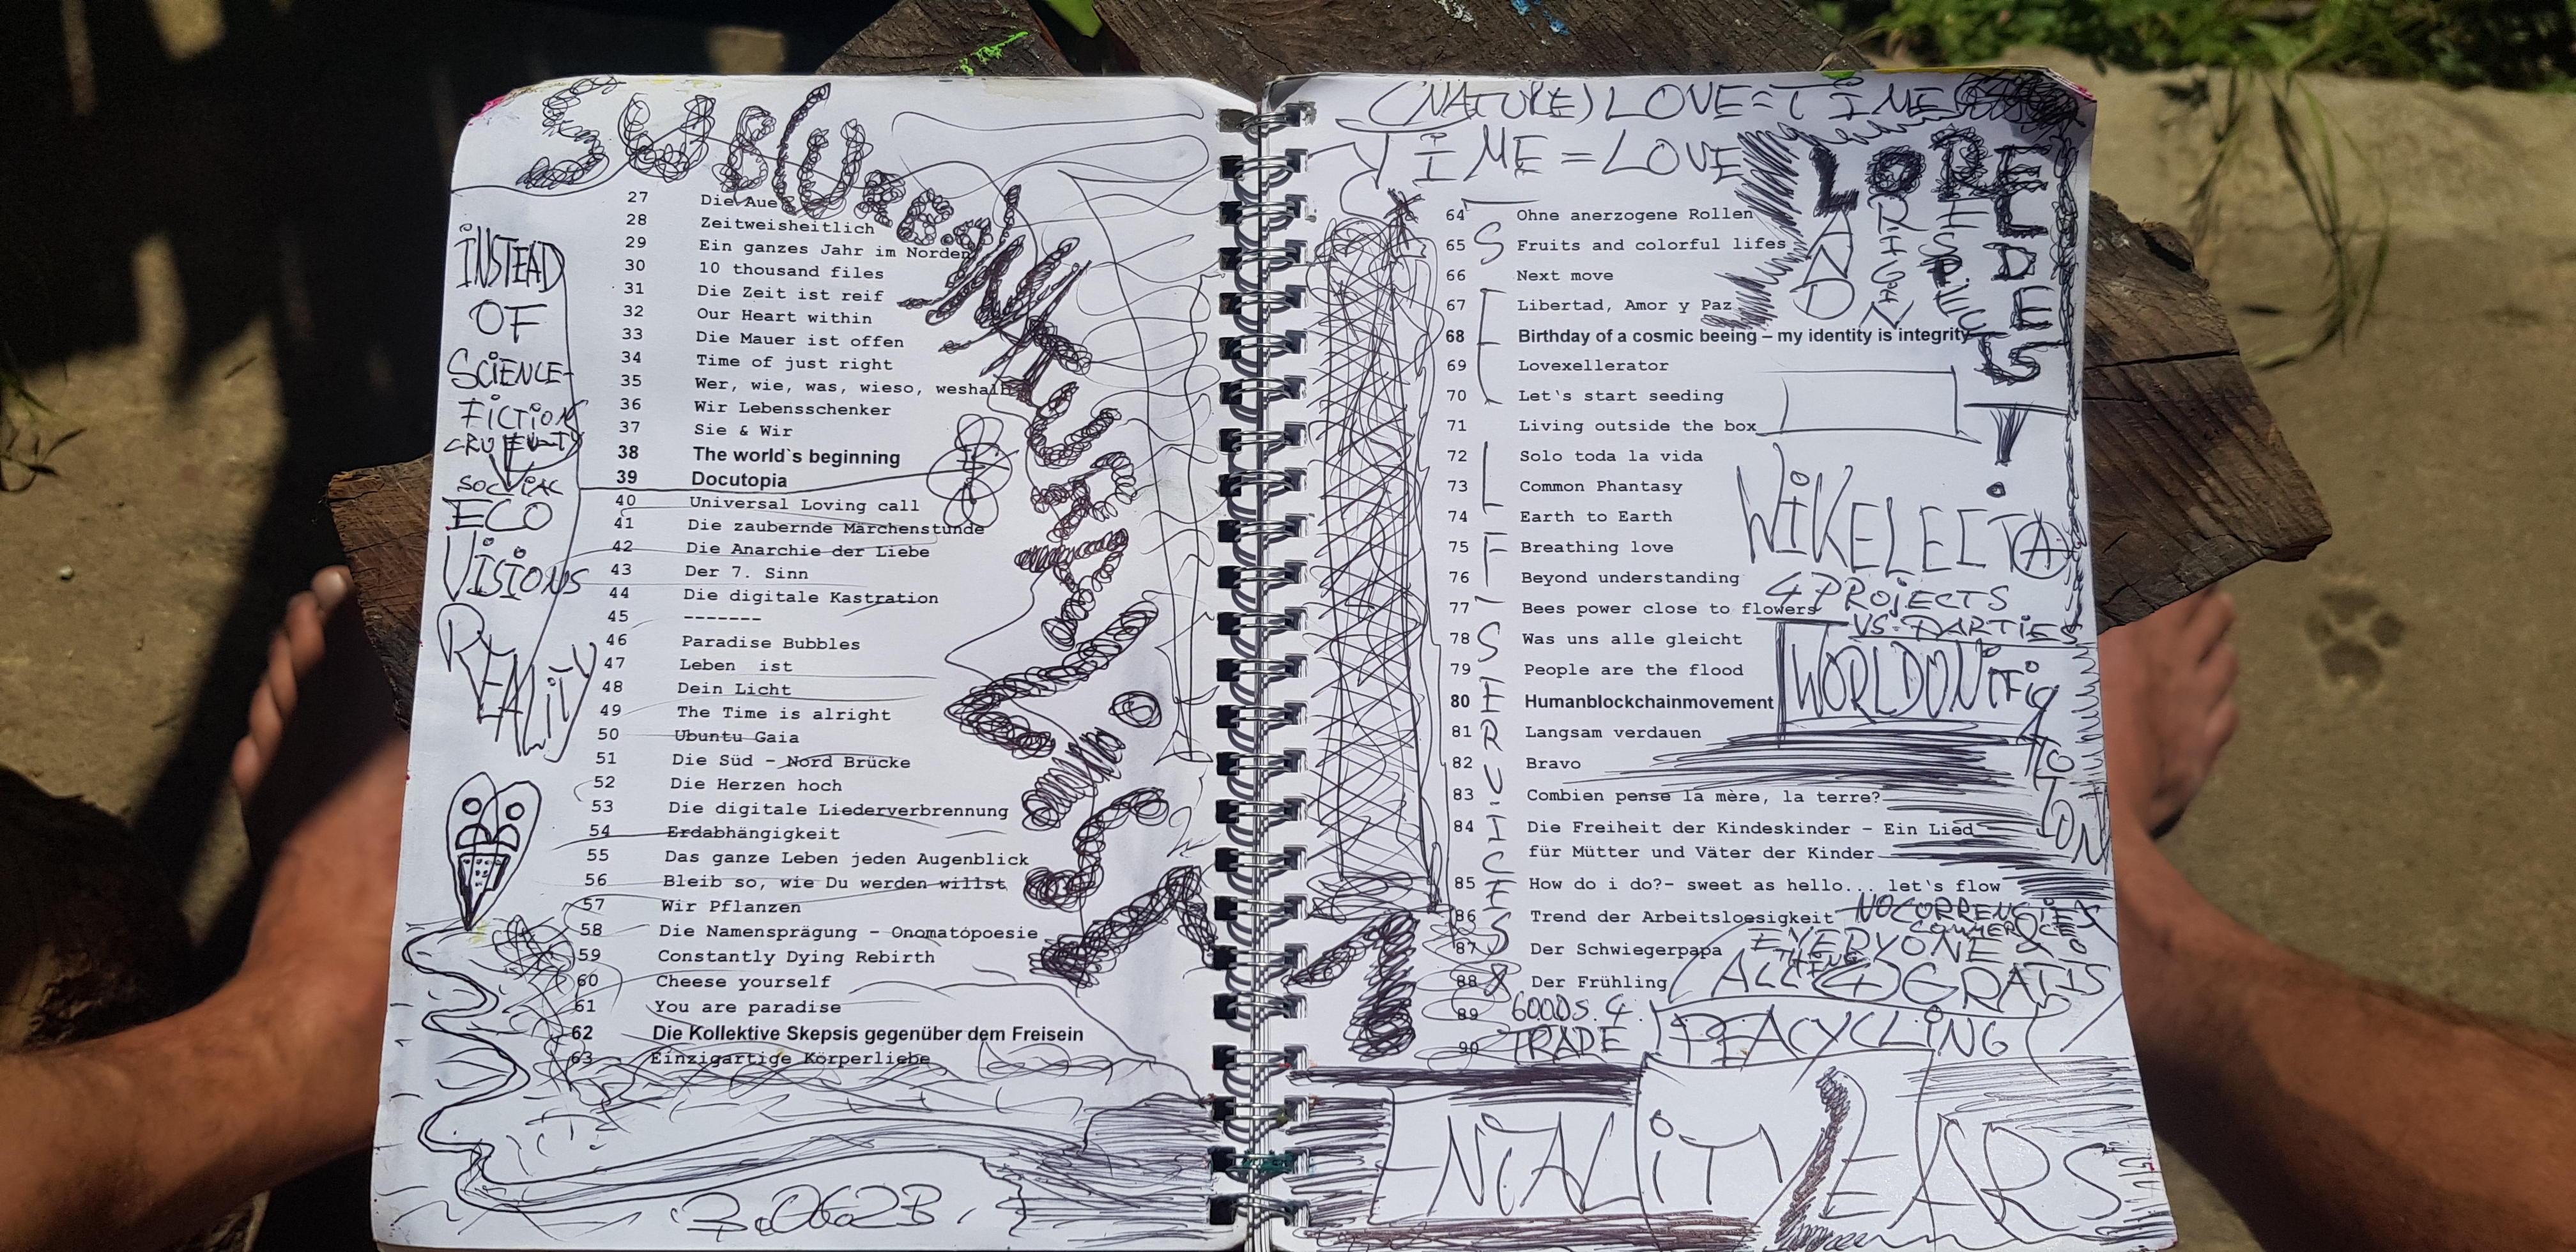 27 Die Aue
28 Zeitweisheitlich
29 Ein ganzes Jahr im Norden
30 10 thousand files
31 Die Zeit ist reif
32 Our Heart within
33 Die Mauer ist offen
34 Time of just right
35 Wer, wie, was, wieso, weshalb
36 Wir Lebensschenker
37 Sie & Wir
38 The world`s beginning
39 Docutopia
40 Universal Loving call
41 Die zaubernde Märchenstunde
42 Die Anarchie der Liebe
43 Der 7. Sinn
44 Die digitale Kastration
45 -------
46 Paradise Bubbles
47 Leben ist
48 Dein Licht
49 The Time is alright
50 Ubuntu Gaia
51 Die Süd - Nord Brücke
52 Die Herzen hoch
53 Die digitale Liederverbrennung
54 Erdabhängigkeit
55 Das ganze Leben jeden Augenblick
56 Bleib so, wie Du werden willst
57 Wir Pflanzen
58 Die Namensprägung - Onomatopoesie
59 Constantly Dying Rebirth
60 Cheese yourself
61 You are paradise
62 Die Kollektive Skepsis gegenüber dem Freisein
63 Einzigartige Körperliebe
INSTEAD
OF
SCIENCE-
FICTION
CRUELTY
SOCIAL
ECO
VISIONS
REALITY
3.0623
(NATURE) LOVE=TIME
TIME=LOVE
64 Ohne anerzogene Rollen
65 Fruits and colorful lifes
66 Next move
67 Libertad, Amor y Paz
68 Birthday of a cosmic beeing – my identity is integrity
69 Lovexellerator
70 Let`s start seeding
71 Living outside the box
72 Solo toda la vida
73 Common Phantasy
74 Earth to Earth
75 Breathing love
76 Beyond understanding
77 Bees power close to flowers
78 Was uns alle gleicht
79 People are the flood
80 Humanblockchainmovement
81 Langsam verdauen
82 Bravo
83 Combien pense la mère, la terre?
84 Die Freiheit der Kindeskinder - Ein Lied
für Mütter und Väter der Kinder
85 How do i do?- sweet as hello... let's flow
86 Trend der Arbeitsloesigkeit
87 Der Schwiegerpapa
88 Der Frühling
89 GOODS. 4.
90 TRADE
SELF
SERVICES
WIKELEITA
4 PROJECTS
VS. PARTIES
EVERYONE &
THING
ALL (4) GRATIS
PEACYCLING
NiALiTYEARS